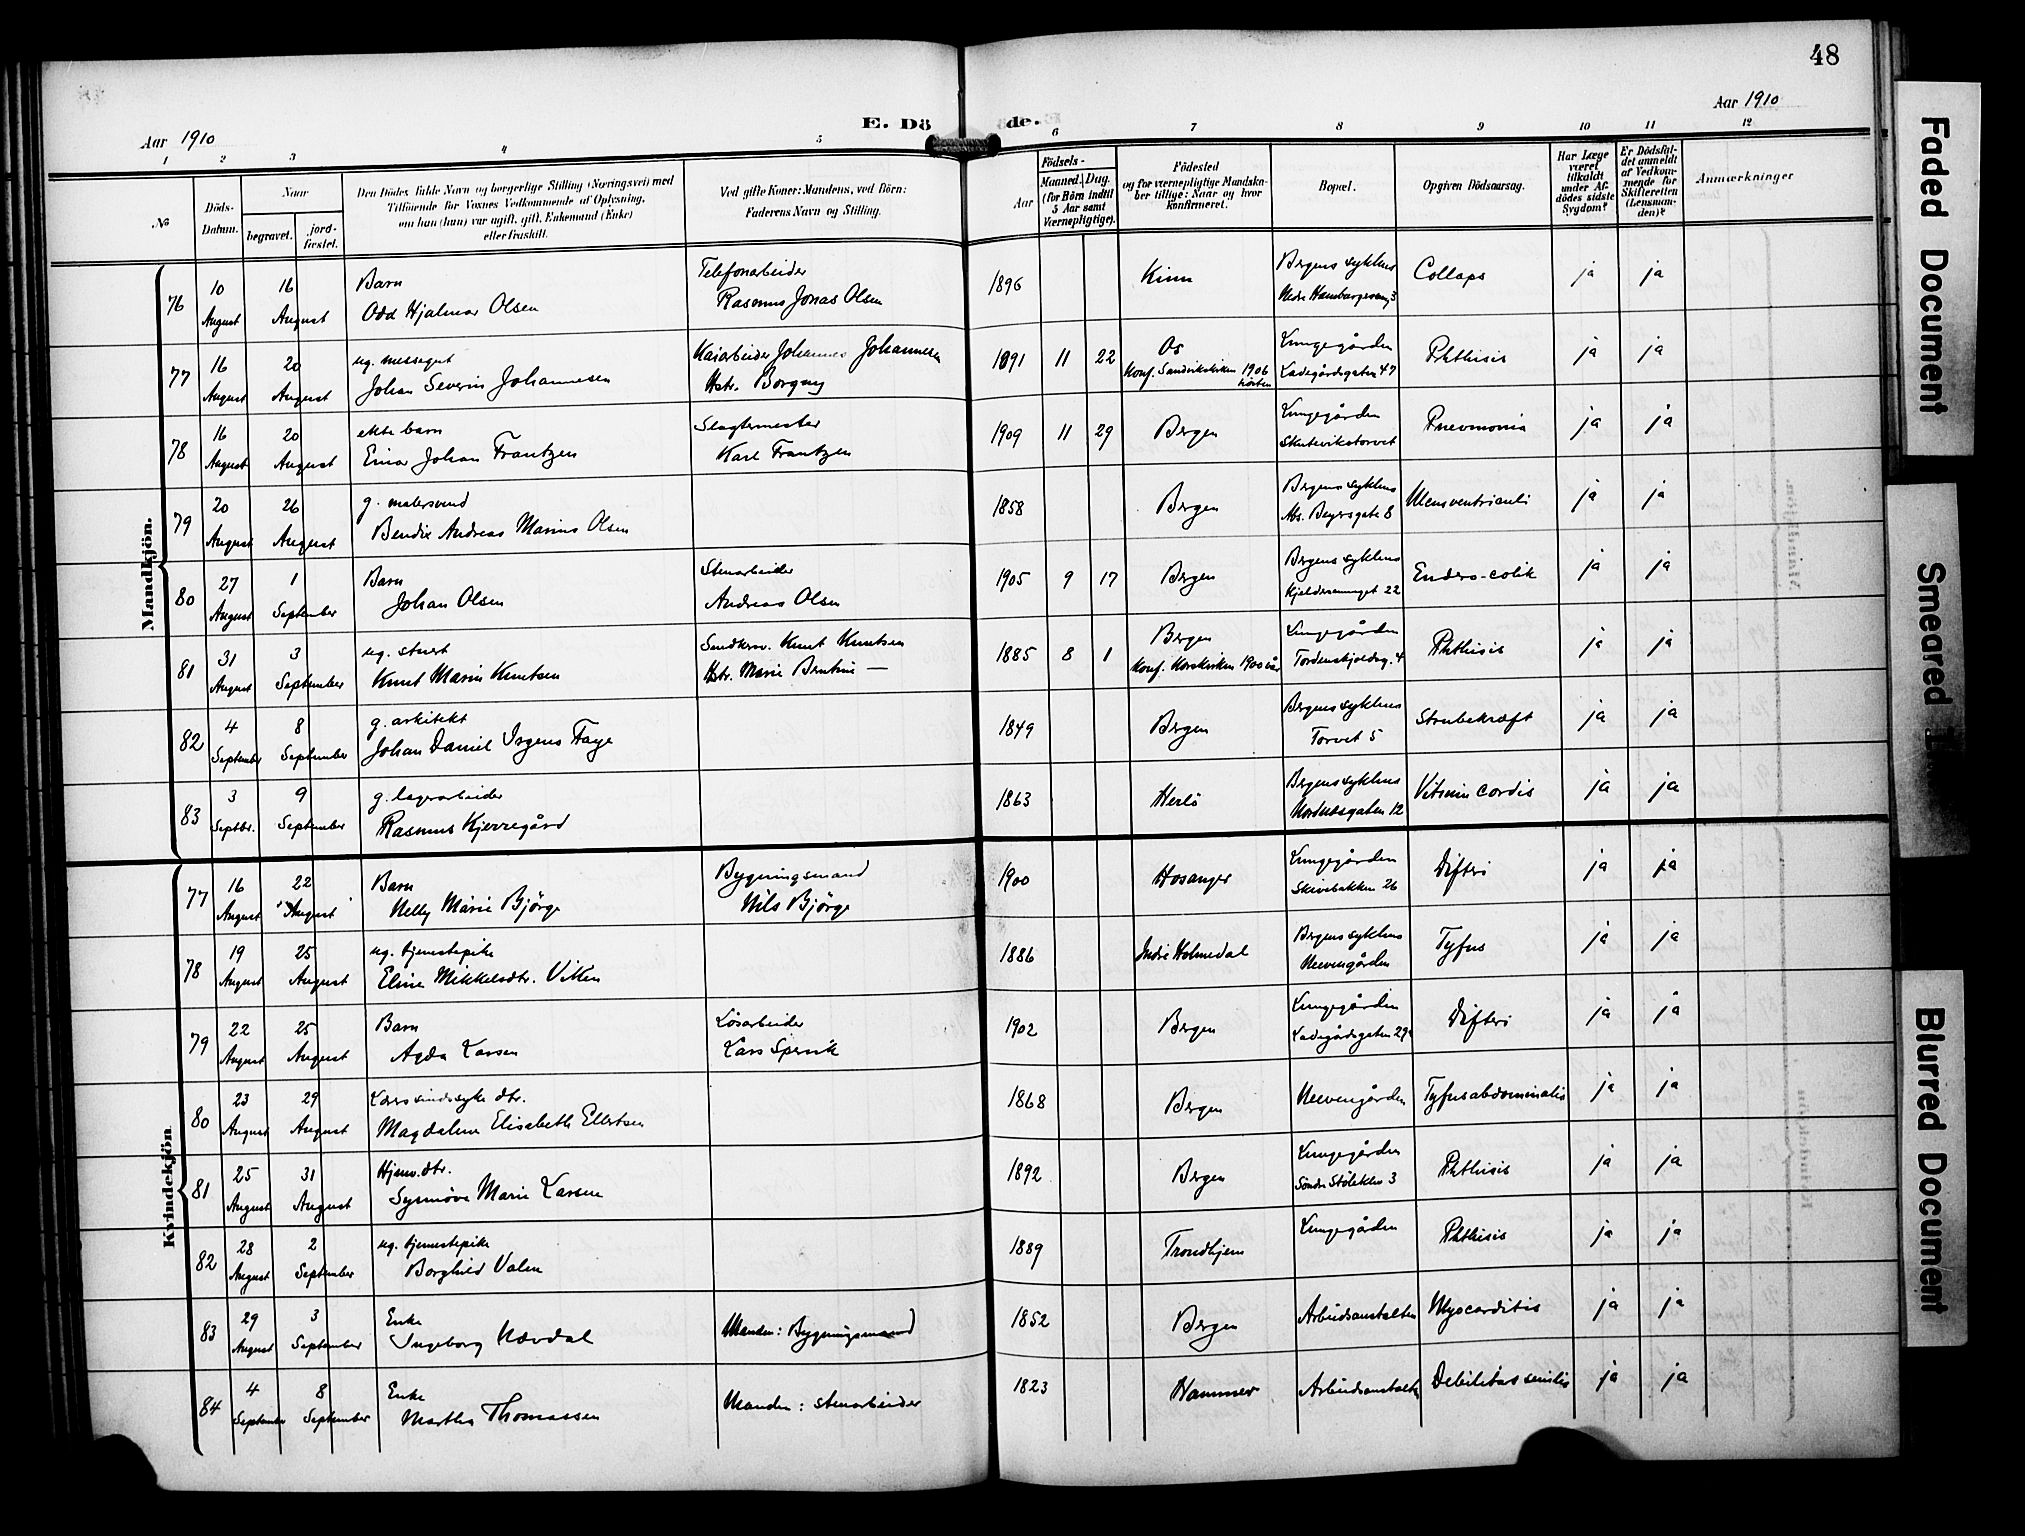 48
Aar 1910
E. Dö
de.
Aar 1910
1 2 3 4 5 6 7 8 9 10 11 12
No
Döds-Datum.
Naar
begravet.
jord-fæstet.
Den Dödes fulde Navn og borgerlige Stilling (Næringsvei) med
Tilföiende for Voxnes Vedkommende af Oplysning,
om han (hun) var ugift, gift, Enkemand (Enke)
eller fraskilt.
Ved gifte Koner: Mandens, ved Börn:
Faderens Navn og Stilling.
Födsels-
Aar
Maaned. Dag.
(for Börn indtil
5 Aar samt
Værnepligtige).
Födested
og for værnepligtige Mandska-
ber tillige: Naar og hvor
konfirmeret.
Bopæl.
Opgiven Dödsaarsag.
Har Læge
været
tilkaldt
under Af-
dödes sidste
Sygdom?
Er Dödsfal-
det anmeldt
af Vedkom-
mende for
Skifteretten
(Lensman-
den)?
Anmærkninger
Mandkjön.
76 10 August 16 August Barn Telefonarbeider 1896 Kinn Bergens sykehus Collaps ja ja
Odd Hjalmar Olsen Rasmus Jonas Olsen Nedre Hamburgersmg 3
77 16 August 20 August ug. messegut Kaiarbeider Johannes Johannesen 1891 11 22 Os Lungegården Phthisis ja ja
Johan Severin Johannesen Hstr. Borgny Konf. Sandvikskirken 1906 høsten Ladegårdsgaten 47
78 16 August 20 August ekte barn Slagtermester 1909 11 29 Bergen Lungegården Pneumonia ja ja
Einar Johan Frantzen Karl Frantzen Skutevikstorvet
79 20 August 26 August g. malersvend 1858 Bergen Bergens sykehus Ulcus ventriculi ja ja
Bendix Andreas Marius Olsen Abs. Beyersgate 8
80 27 August 1 September Barn Stenarbeider 1905 9 17 Bergen Bergens sykehus Endero-colik ja ja
Johan Olsen Andreas Olsen 22
81 31 August 3 September ug. stuert Knut Knutsen 1885 8 1 Bergen Lungegården Phthisis ja ja
Knut Marin Knutsen Hstr. Marie Bentine — Konf. Korskirken 1900 vår Tordenskjoldsg. 4
82 4 September 8 September g. arkitekt 1849 Bergen Bergens sykehus Strubekræft ja ja
Johan Daniel Irgens Faye Torvet 5
83 3 Septbr. 9 September g. lagerarbeider 1863 Herlö Bergens sykehus Vitium cordis ja ja
Rasmus Kjerregård Nordnesgaten 12
Kvindekjön.
77 16 August 22 August Barn Bygningsmand 1900 Hosanger Lungegården Difteri ja ja
Nelly Marie Bjørge Nils Bjørge Skivebakken 26
78 19 August 25 August ug. tjenestepike 1886 Indre Holmedal Bergens sykehus Tyfus ja ja
Eline Mikkelsdtr. Viken Neevengården
79 22 August 25 August Barn Løsarbeider 1902 Bergen Lungegården Difteri ja ja
Agda Larsen Lars Ladegårdsgaten 29
80 23 August 29 August dtr. 1868 Bergen Neevengården Tyfus abdominalis ja ja
Magdalene Elisabeth Ellertsen
81 25 August 31 August Hjemv. dtr. 1892 Bergen Lungegården Phthisis ja ja
Synnøve Marie Larsen Søndre Stølekleiv 3
82 28 August 2 September ug. tjenestepike 1889 Trondhjem Lungegården Phthisis ja ja
Borghild Valen
83 29 August 3 September Enke Manden: Bygningsmand 1852 Bergen Arbeidsanstalten Myocarditis ja ja
Ingeborg Nævdal
84 4 September 8 September Enke Manden: stenarbeider 1823 Hammer Arbeidsanstalten Debilitas senilis ja ja
Martha Thomassen
Faded Document
Smeared
Blurred Document